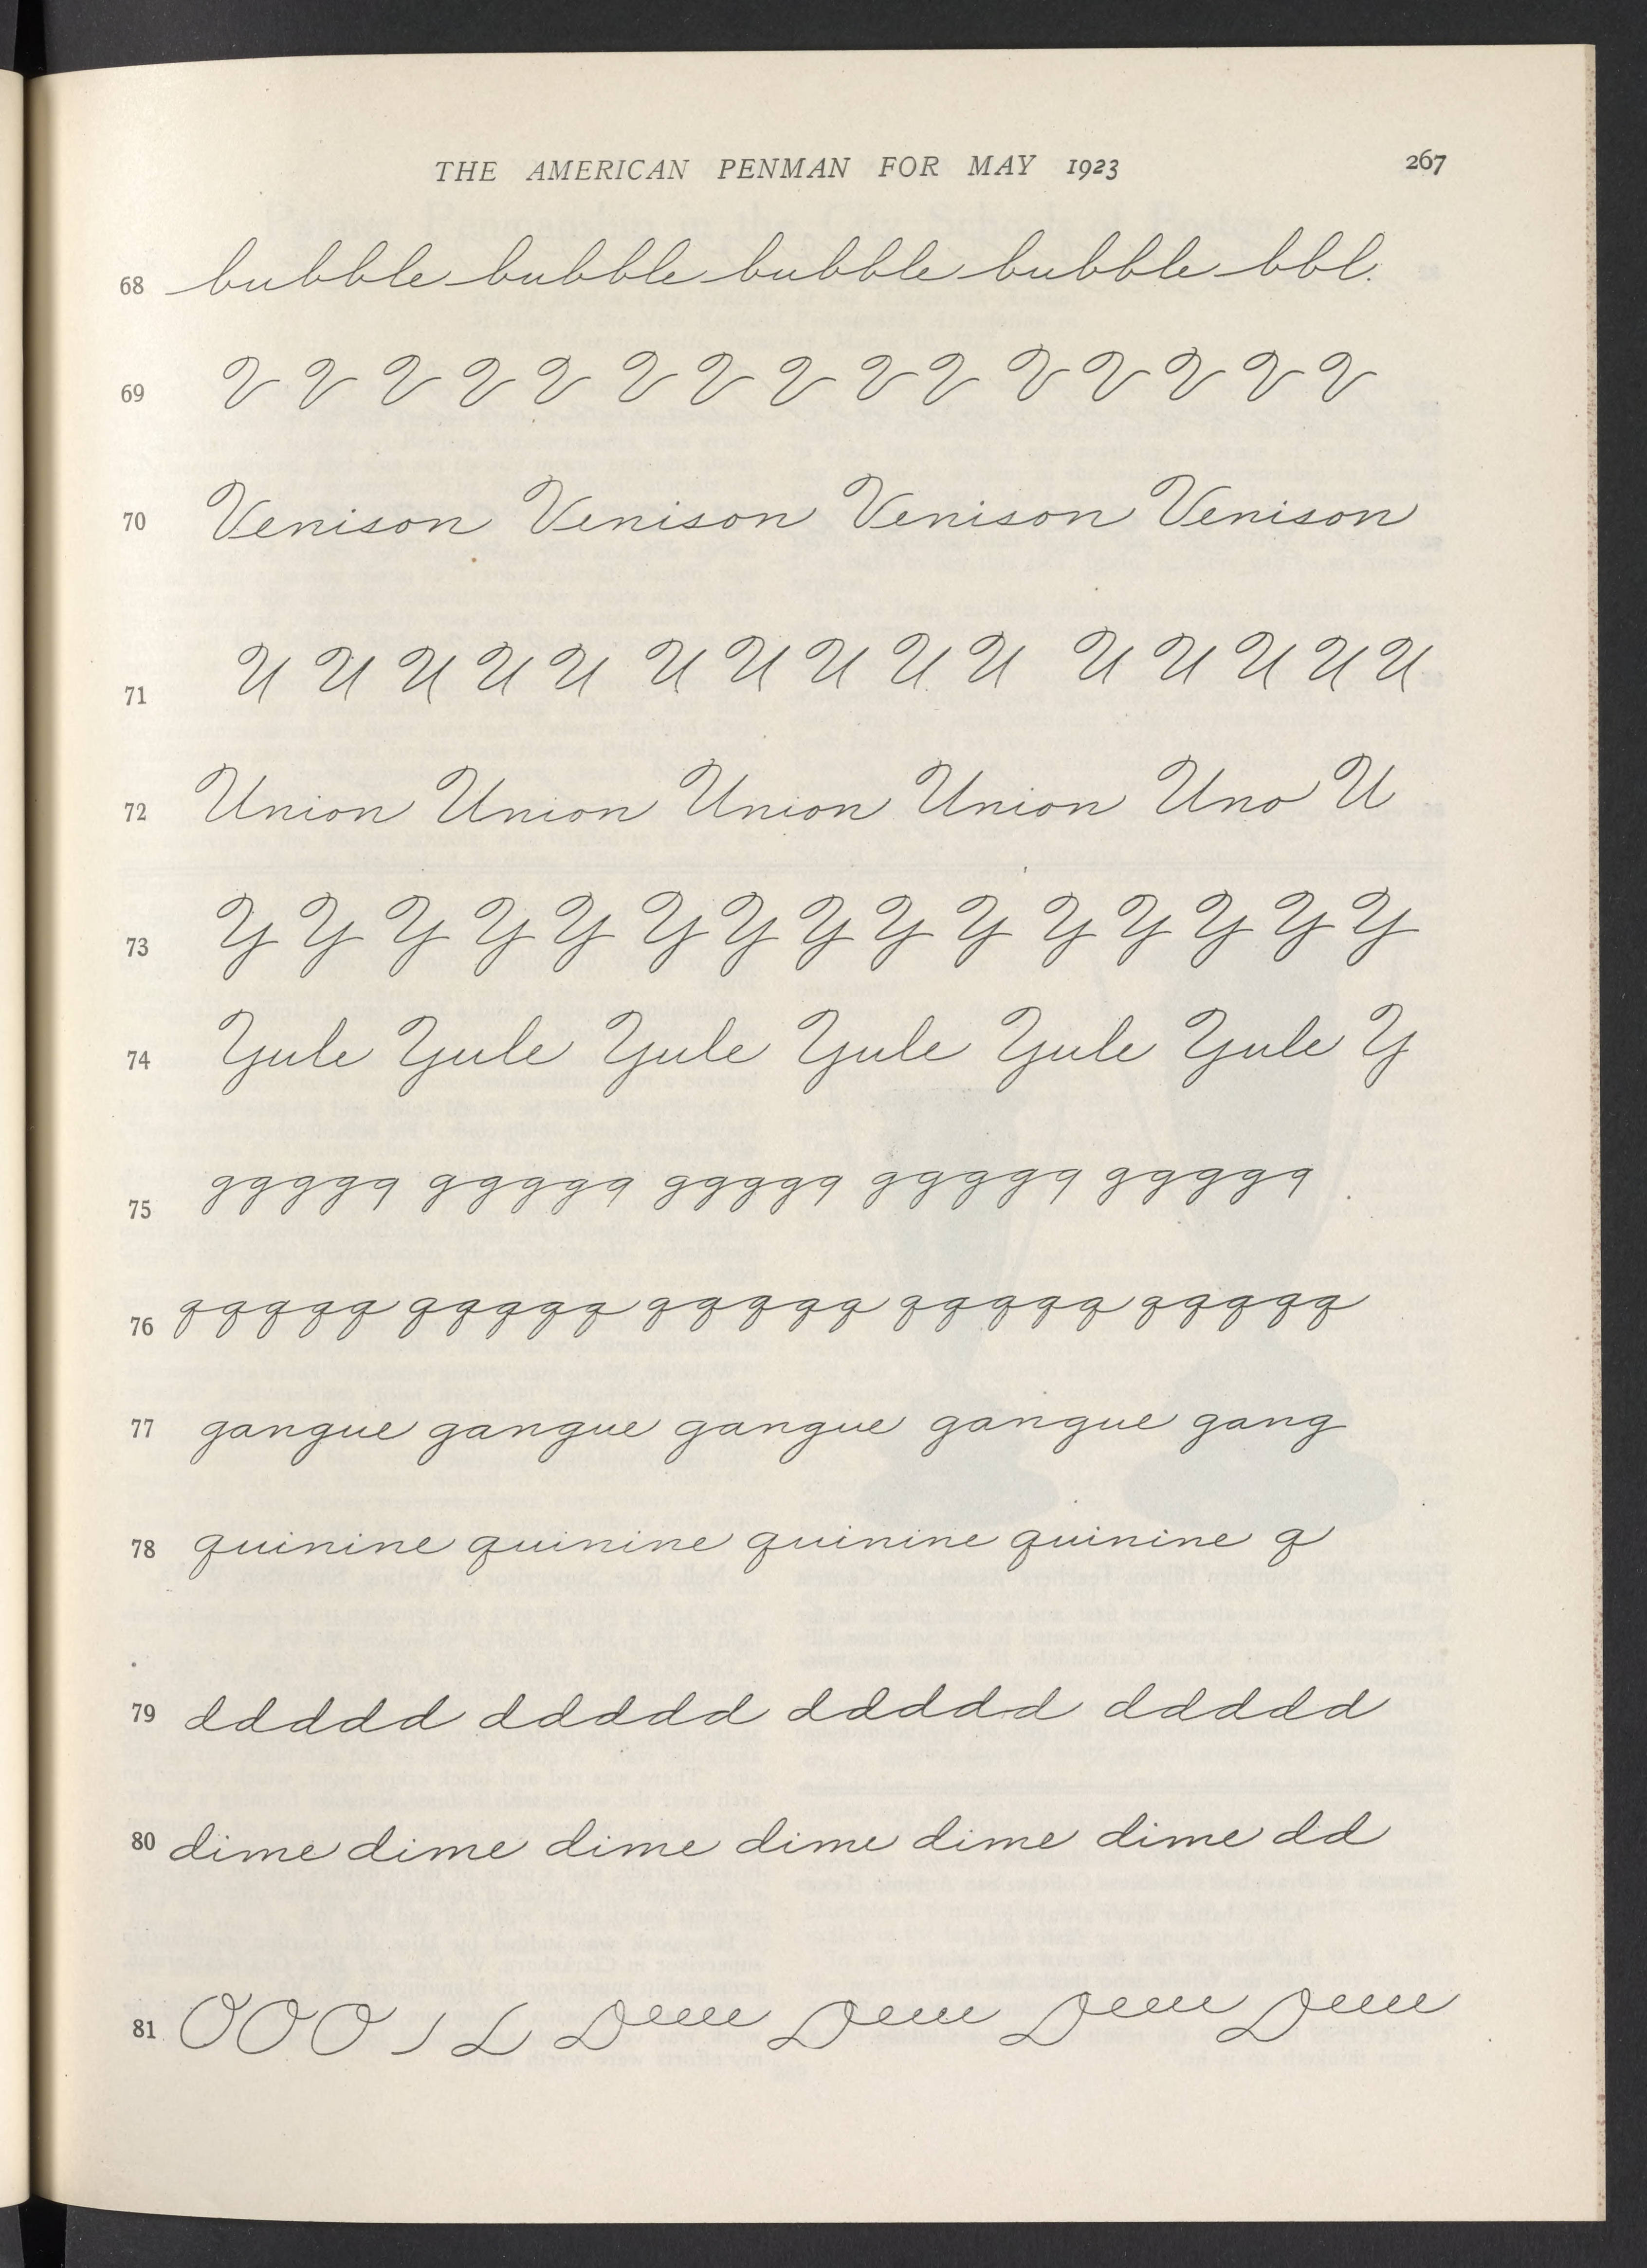 THE AMERICAN PENMAN FOR MAY 1923 267
68 bubble bubble bubble bubble bbl.
69 V V V V V V V V V V V V V V V
70 Venison Venison Venison Venison
71 U U U U U U U U U U U U U U U
72 Union Union Union Union Uno U
73 Y Y Y Y Y Y Y Y Y Y Y Y Y Y Y
74 Yule Yule Yule Yule Yule Yule Y
75 ggggg ggggg ggggg ggggg ggggg
76 qqqqq qqqqq qqqqq qqqqq qqqqq
77 gangue gangue gangue gangue gang
78 quinine quinine quinine quinine q
79 ddddd ddddd ddddd ddddd
80 dime dime dime dime dime dime dd
81 O O O